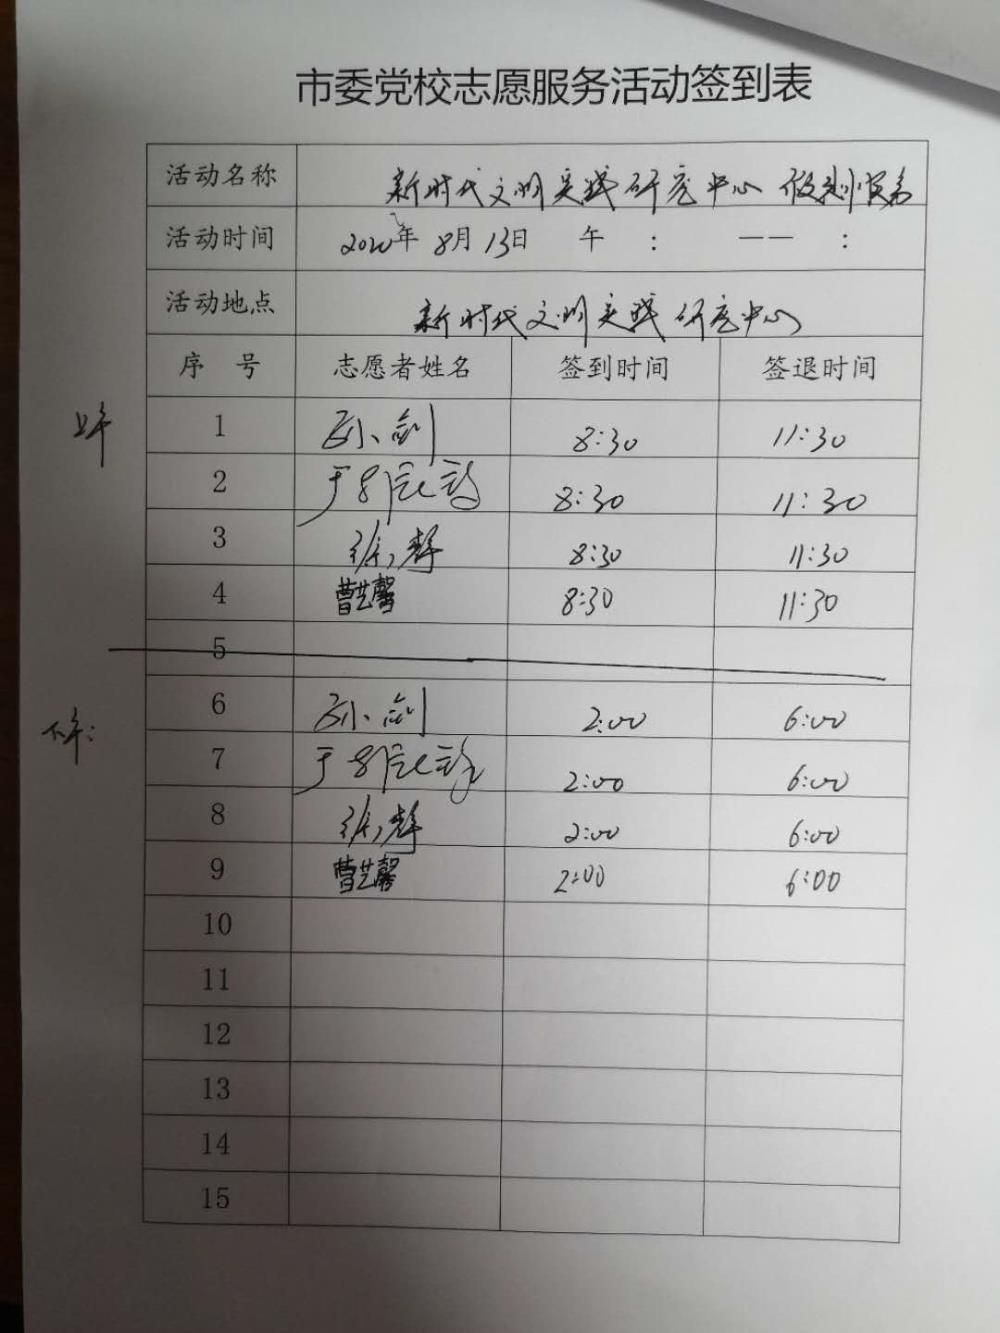 市委党校志愿服务活动签到表
活动名称 新时代文明实践研究中心
活动时间 2020年 8月 13日 午 : —— :
活动地点 新时代文明实践研究中心
序 号 志愿者姓名 签到时间 签退时间
上午
1 孙剑 8:30 11:30
2 于 8:30 11:30
3 张静 8:30 11:30
4 曹艺馨 8:30 11:30
5
6 孙剑 2:00 6:00
下午:
7 于 2:00 6:00
8 张静 2:00 6:00
9 曹艺馨 2:00 6:00
10
11
12
13
14
15